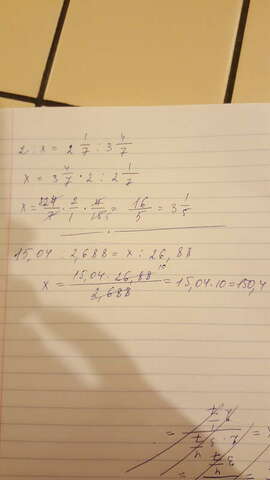 2 : x = 2 1/7 : 3 4/7
x = 3 4/7 · 2 : 2 1/7
· 2/1 · = 16/5 = 3 1/5
15,04 : 2,688 = x : 26,88
x = 15,04 · 26,88 / 2,688 = 15,04 · 10 = 150,4